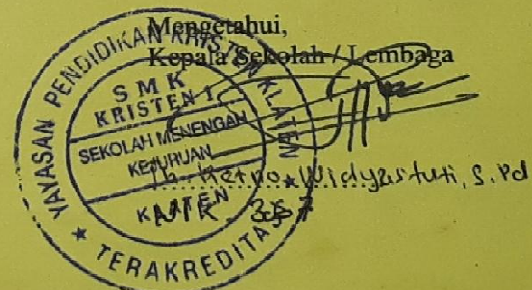 Mengetahui,
Kepala Sekolah / Lembaga
YAYASAN PENDIDIKAN KRISTEN KLATEN
SMK
KRISTEN 1
SEKOLAH MENENGAH
KEJURUAN
KLATEN
★ TERAKREDITASI
Th. Retno Widyastuti, S.Pd
NIK. 357